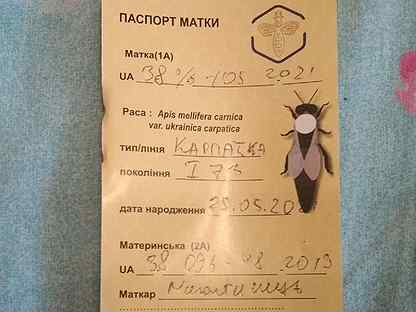 ПАСПОРТ МАТКИ
Матка(1А)
UA 2021
Раса : Apis mellifera carnica
var. ukrainica carpatica
тип/лінія КАРПАТКА
покоління
дата народження 25.05.20
Материнська (2А)
UA 2019
Маткар